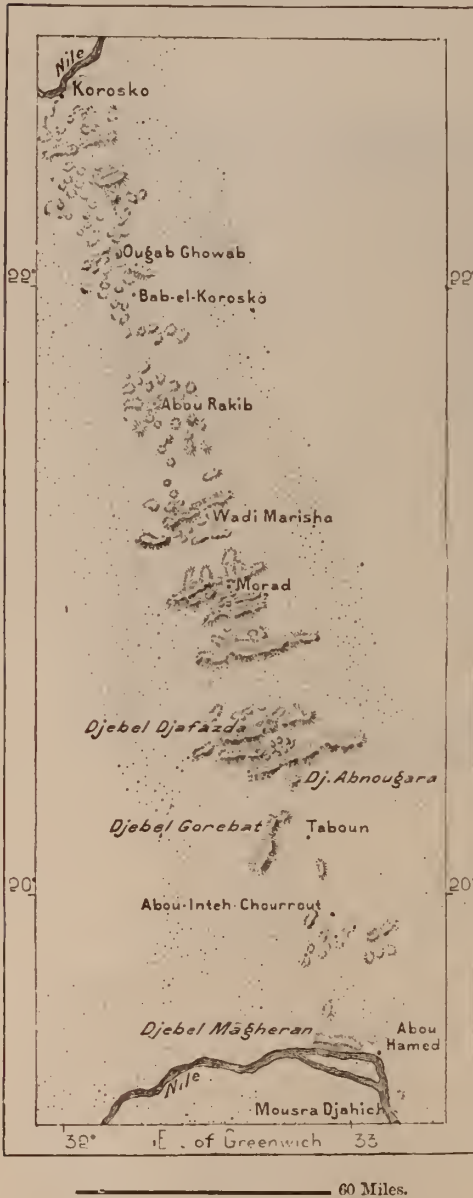 Nile
Korosko
Ougab Ghowab
22°
22°
Bab-el-Korosko
Abou Rakib
Wadi Marisha
Morad
Djebel Djafazda
Dj. Abnougara
Djebel Gorebat
Taboun
20°
20°
Abou-Inteh-Chourrout
Djebel Magheran
Abou
Hamed
Nile
Mousra Djahich
32°
E. of Greenwich
33
60 Miles.